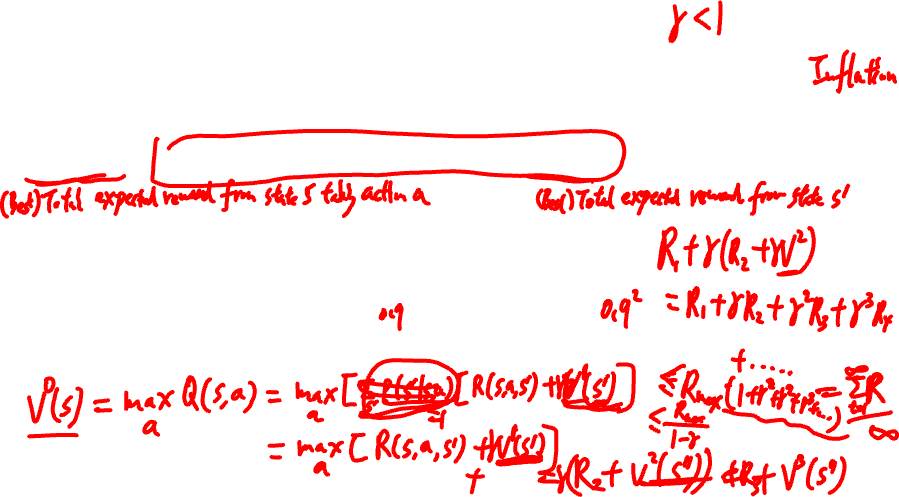 γ < 1
Inflation
(Best) Total expected reward from state s taking action a
(Best) Total expected reward from state s'
R₁ + γ(R₂ + γV²)
0.9
0.9² = R₁ + γR₂ + γ²R₃ + γ³R₄
+ ......
V*(s) = max Q(s,a) = max [ [ R(s,a,s') + γV*(s') ] ≤ R_max (1 + γ + γ² + γ³ + ...) = Σ R
a a ≤ R_max / 1-γ ∞
= max [ R(s,a,s') + γV*(s') ]
a + γ(R₂ + V²(s'')) + R₃ + V³(s'')